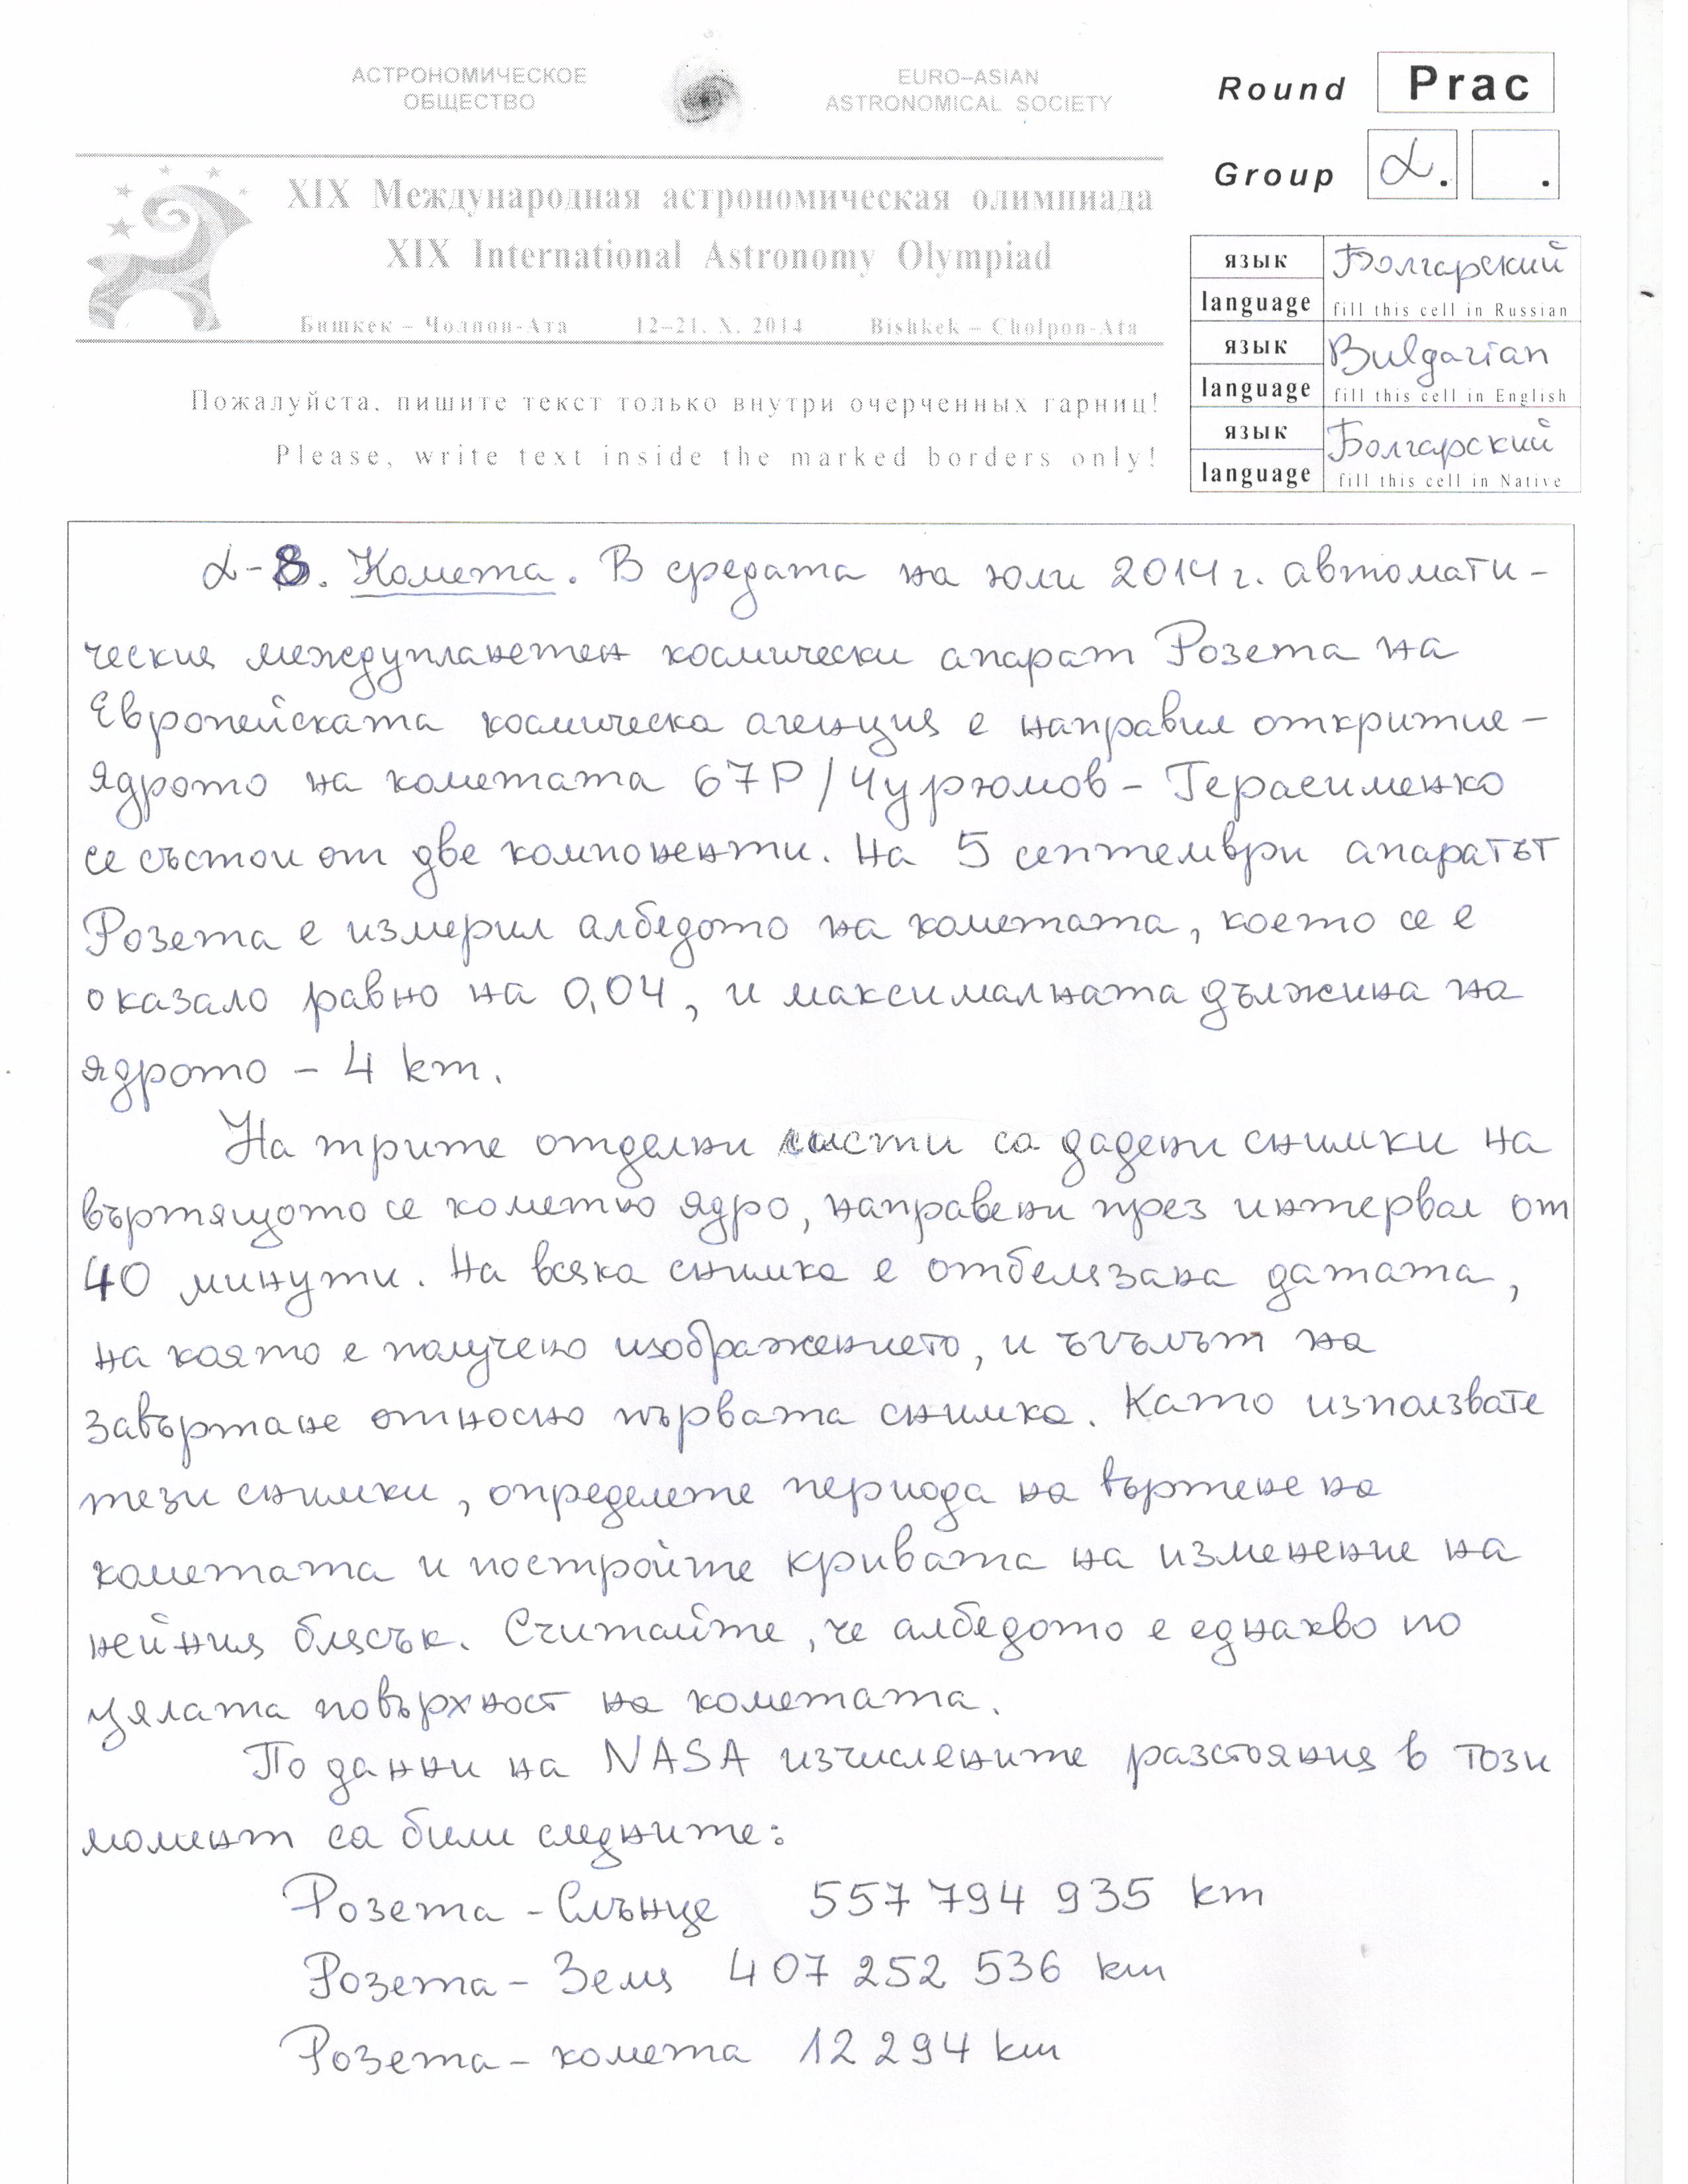 АСТРОНОМИЧЕСКОЕ
ОБЩЕСТВО
EURO–ASIAN
ASTRONOMICAL SOCIETY
Round Prac
Group α. .
XIX Международная астрономическая олимпиада
XIX International Astronomy Olympiad
Бишкек – Чолпон-Ата 12–21. X. 2014 Bishkek – Cholpon-Ata
язык Болгарский
language fill this cell in Russian
язык Bulgarian
language fill this cell in English
язык Болгарский
language fill this cell in Native
Пожалуйста, пишите текст только внутри очерченных гарниц!
Please, write text inside the marked borders only!
α-8. Комета. В средата на юли 2014 г. автомати-
ческия междупланетен космически апарат Розета на
Европейската космическа агенция е направил откритие –
ядрото на кометата 67P/Чурюмов – Герасименко
се състои от две компоненти. На 5 септември апаратът
Розета е измерил албедото на кометата, което се е
оказало равно на 0,04, и максималната дължина на
ядрото – 4 km.
На трите отделни листи са дадени снимки на
въртящото се кометно ядро, направени през интервал от
40 минути. На всяка снимка е отбелязана датата,
на която е получено изображението, и ъгълът на
завъртане относно първата снимка. Като използвате
тези снимки, определете периода на въртене на
кометата и постройте кривата на изменение на
нейния блясък. Считайте, че албедото е еднакво по
цялата повърхност на кометата.
По данни на NASA изчислените разстояния в този
момент са били следните:
Розета – Слънце 557 794 935 km
Розета – Земя 407 252 536 km
Розета – комета 12 294 km